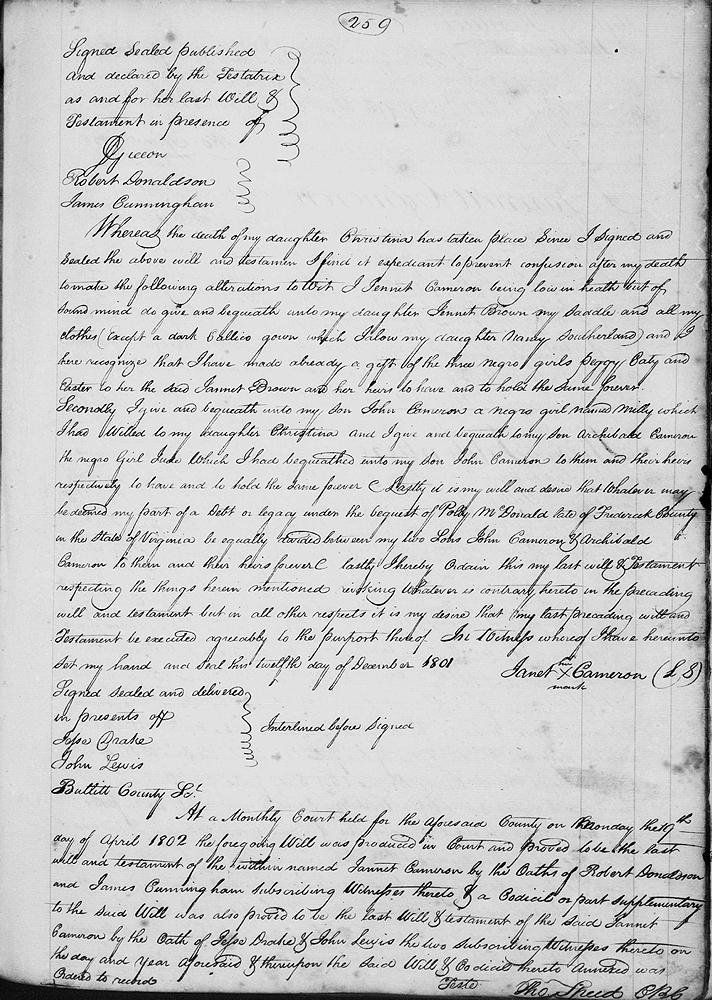 259
Signed Sealed published
and declared by the Testatrix
as and for her last Will &
Testament in presence off
Robert Donaldson
James Cunningham
Whereas the death of my daughter Christina has taken place Since I Signed and
Sealed the above will and testamen I find it expediant to prevent confusion after my death
to make the following alterations to Wit I Jennet Cameron being low in heath but of
Sound mind do give and bequeath unto my daughter Jennet Brown my Saddle and all my
clothes (Except a dark Callico gown which I alow my daughter Nancy Southerland) and I
here recognize that I have made already a gift of the three negro girls Peggy Caty and
Easter to her the said Jannet Brown and her heirs to have and to hold the Same forever
Secondly I give and bequeath unto my Son John Cameron a negro girl named Milly which
I had Willed to my daughter Christina and I give and bequeath to my Son Archibald Cameron
the negro Girl June Which I had bequeathed unto my Son John Cameron to them and their heirs
respectively to have and to hold the Same forever Lastly it is my will and desire that Whatever may
be deemed my part of a Debt or legacy under the bequest of Polly McDonald late of Frederick County
in the State of Virginia be equally divided between my two Sons John Cameron & Archibald
Cameron to them and their heirs forever lastly I hereby Ordain this my last will & Testament
respecting the things herein mentioned revoking Whatever is contrary hereto in the preceading
will and testament but in all other respects it is my desire that my last preceading will and
Testament be executed agreeably to the purport thereof In Witness whereof I have hereunto
Set my hand and Seal this twelfth day of December 1801
Janet her X mark Cameron (L S)
Signed Sealed and delivered
in presents off
Jesse Drake
John Lewis
Interlined before Signed
Bullitt County Sct
At a Monthly Court held for the aforesaid County on Monday the 19th
day of April 1802 the foregoing Will was produced in Court and proved to be the last
will and testament of the within named Jannet Cameron by the Oaths of Robert Donaldson
and James Cunningham Subscribing Witnesses thereto & a Codicil or part Supplementary
to the Said Will was also proved to be the last Will & testament of the Said Jannet
Cameron by the Oath of Jesse Drake & John Lewis the two Subscribing Witnesses thereto on
the day and year aforesaid & thereupon the Said Will & Codicil hereto Annexed was
Ordered to record
Teste